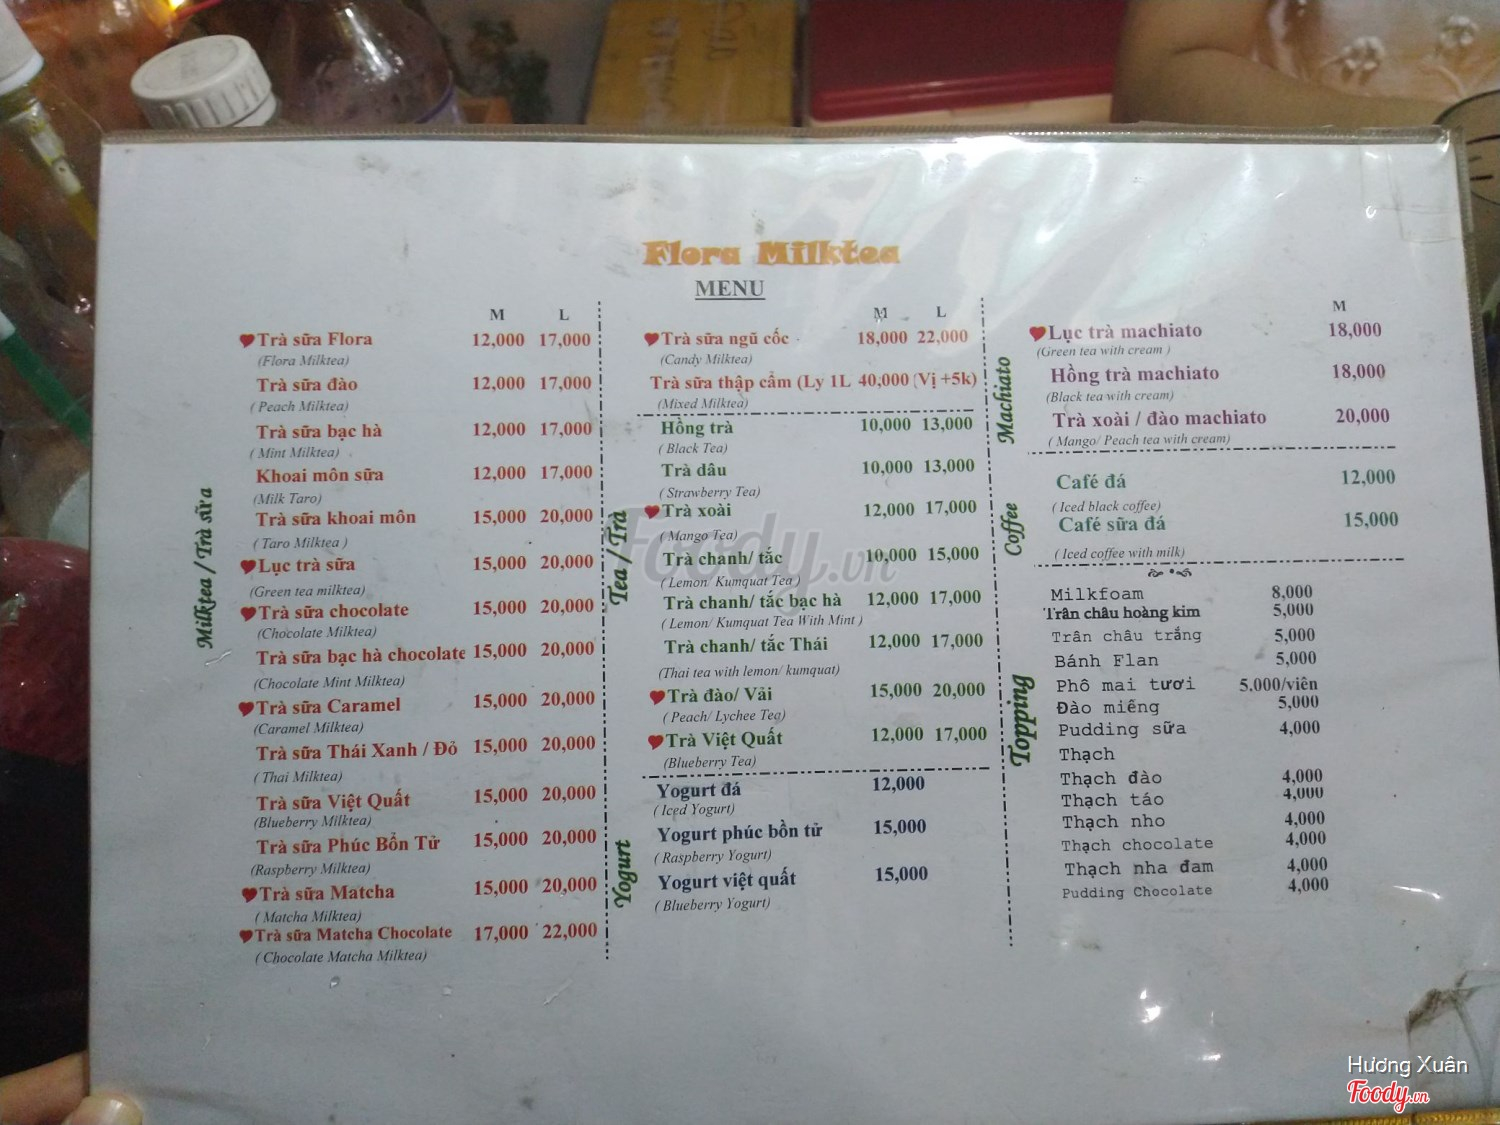 Flora Milktea
MENU
M L
Milktea / Trà sữa
Trà sữa Flora 12,000 17,000
(Flora Milktea)
Trà sữa đào 12,000 17,000
( Peach Milktea)
Trà sữa bạc hà 12,000 17,000
( Mint Milktea)
Khoai môn sữa 12,000 17,000
(Milk Taro)
Trà sữa khoai môn 15,000 20,000
( Taro Milktea )
Lục trà sữa 15,000 20,000
(Green tea milktea)
Trà sữa chocolate 15,000 20,000
(Chocolate Milktea)
Trà sữa bạc hà chocolate 15,000 20,000
(Chocolate Mint Milktea)
Trà sữa Caramel 15,000 20,000
(Caramel Milktea)
Trà sữa Thái Xanh / Đỏ 15,000 20,000
( Thai Milktea)
Trà sữa Việt Quất 15,000 20,000
(Blueberry Milktea)
Trà sữa Phúc Bồn Tử 15,000 20,000
(Raspberry Milktea)
Trà sữa Matcha 15,000 20,000
( Matcha Milktea)
Trà sữa Matcha Chocolate 17,000 22,000
( Chocolate Matcha Milktea)
M L
Trà sữa ngũ cốc 18,000 22,000
(Candy Milktea)
Trà sữa thập cẩm (Ly 1L 40,000 (Vị +5k)
(Mixed Milktea)
Tea / Trà
Hồng trà 10,000 13,000
( Black Tea)
Trà dâu 10,000 13,000
( Strawberry Tea)
Trà xoài 12,000 17,000
( Mango Tea)
Trà chanh/ tắc 10,000 15,000
( Lemon/ Kumquat Tea )
Trà chanh/ tắc bạc hà 12,000 17,000
( Lemon/ Kumquat Tea With Mint )
Trà chanh/ tắc Thái 12,000 17,000
(Thai tea with lemon/ kumquat)
Trà đào/ Vải 15,000 20,000
( Peach/ Lychee Tea)
Trà Việt Quất 12,000 17,000
(Blueberry Tea)
Yogurt
Yogurt đá 12,000
( Iced Yogurt)
Yogurt phúc bồn tử 15,000
( Raspberry Yogurt)
Yogurt việt quất 15,000
( Blueberry Yogurt)
M
Machiato
Lục trà machiato 18,000
(Green tea with cream )
Hồng trà machiato 18,000
(Black tea with cream)
Trà xoài / đào machiato 20,000
( Mango/ Peach tea with cream)
Coffee
Café đá 12,000
( Iced black coffee)
Café sữa đá 15,000
( Iced coffee with milk)
Topping
Milkfoam 8,000
Trân châu hoàng kim 5,000
Trân châu trắng 5,000
Bánh Flan 5,000
Phô mai tươi 5.000/viên
Đào miếng 5,000
Pudding sữa 4,000
Thạch
Thạch đào 4,000
Thạch táo 4,000
Thạch nho 4,000
Thạch chocolate 4,000
Thạch nha đam 4,000
Pudding Chocolate 4,000
Foody.vn
Hương Xuân
Foody.vn